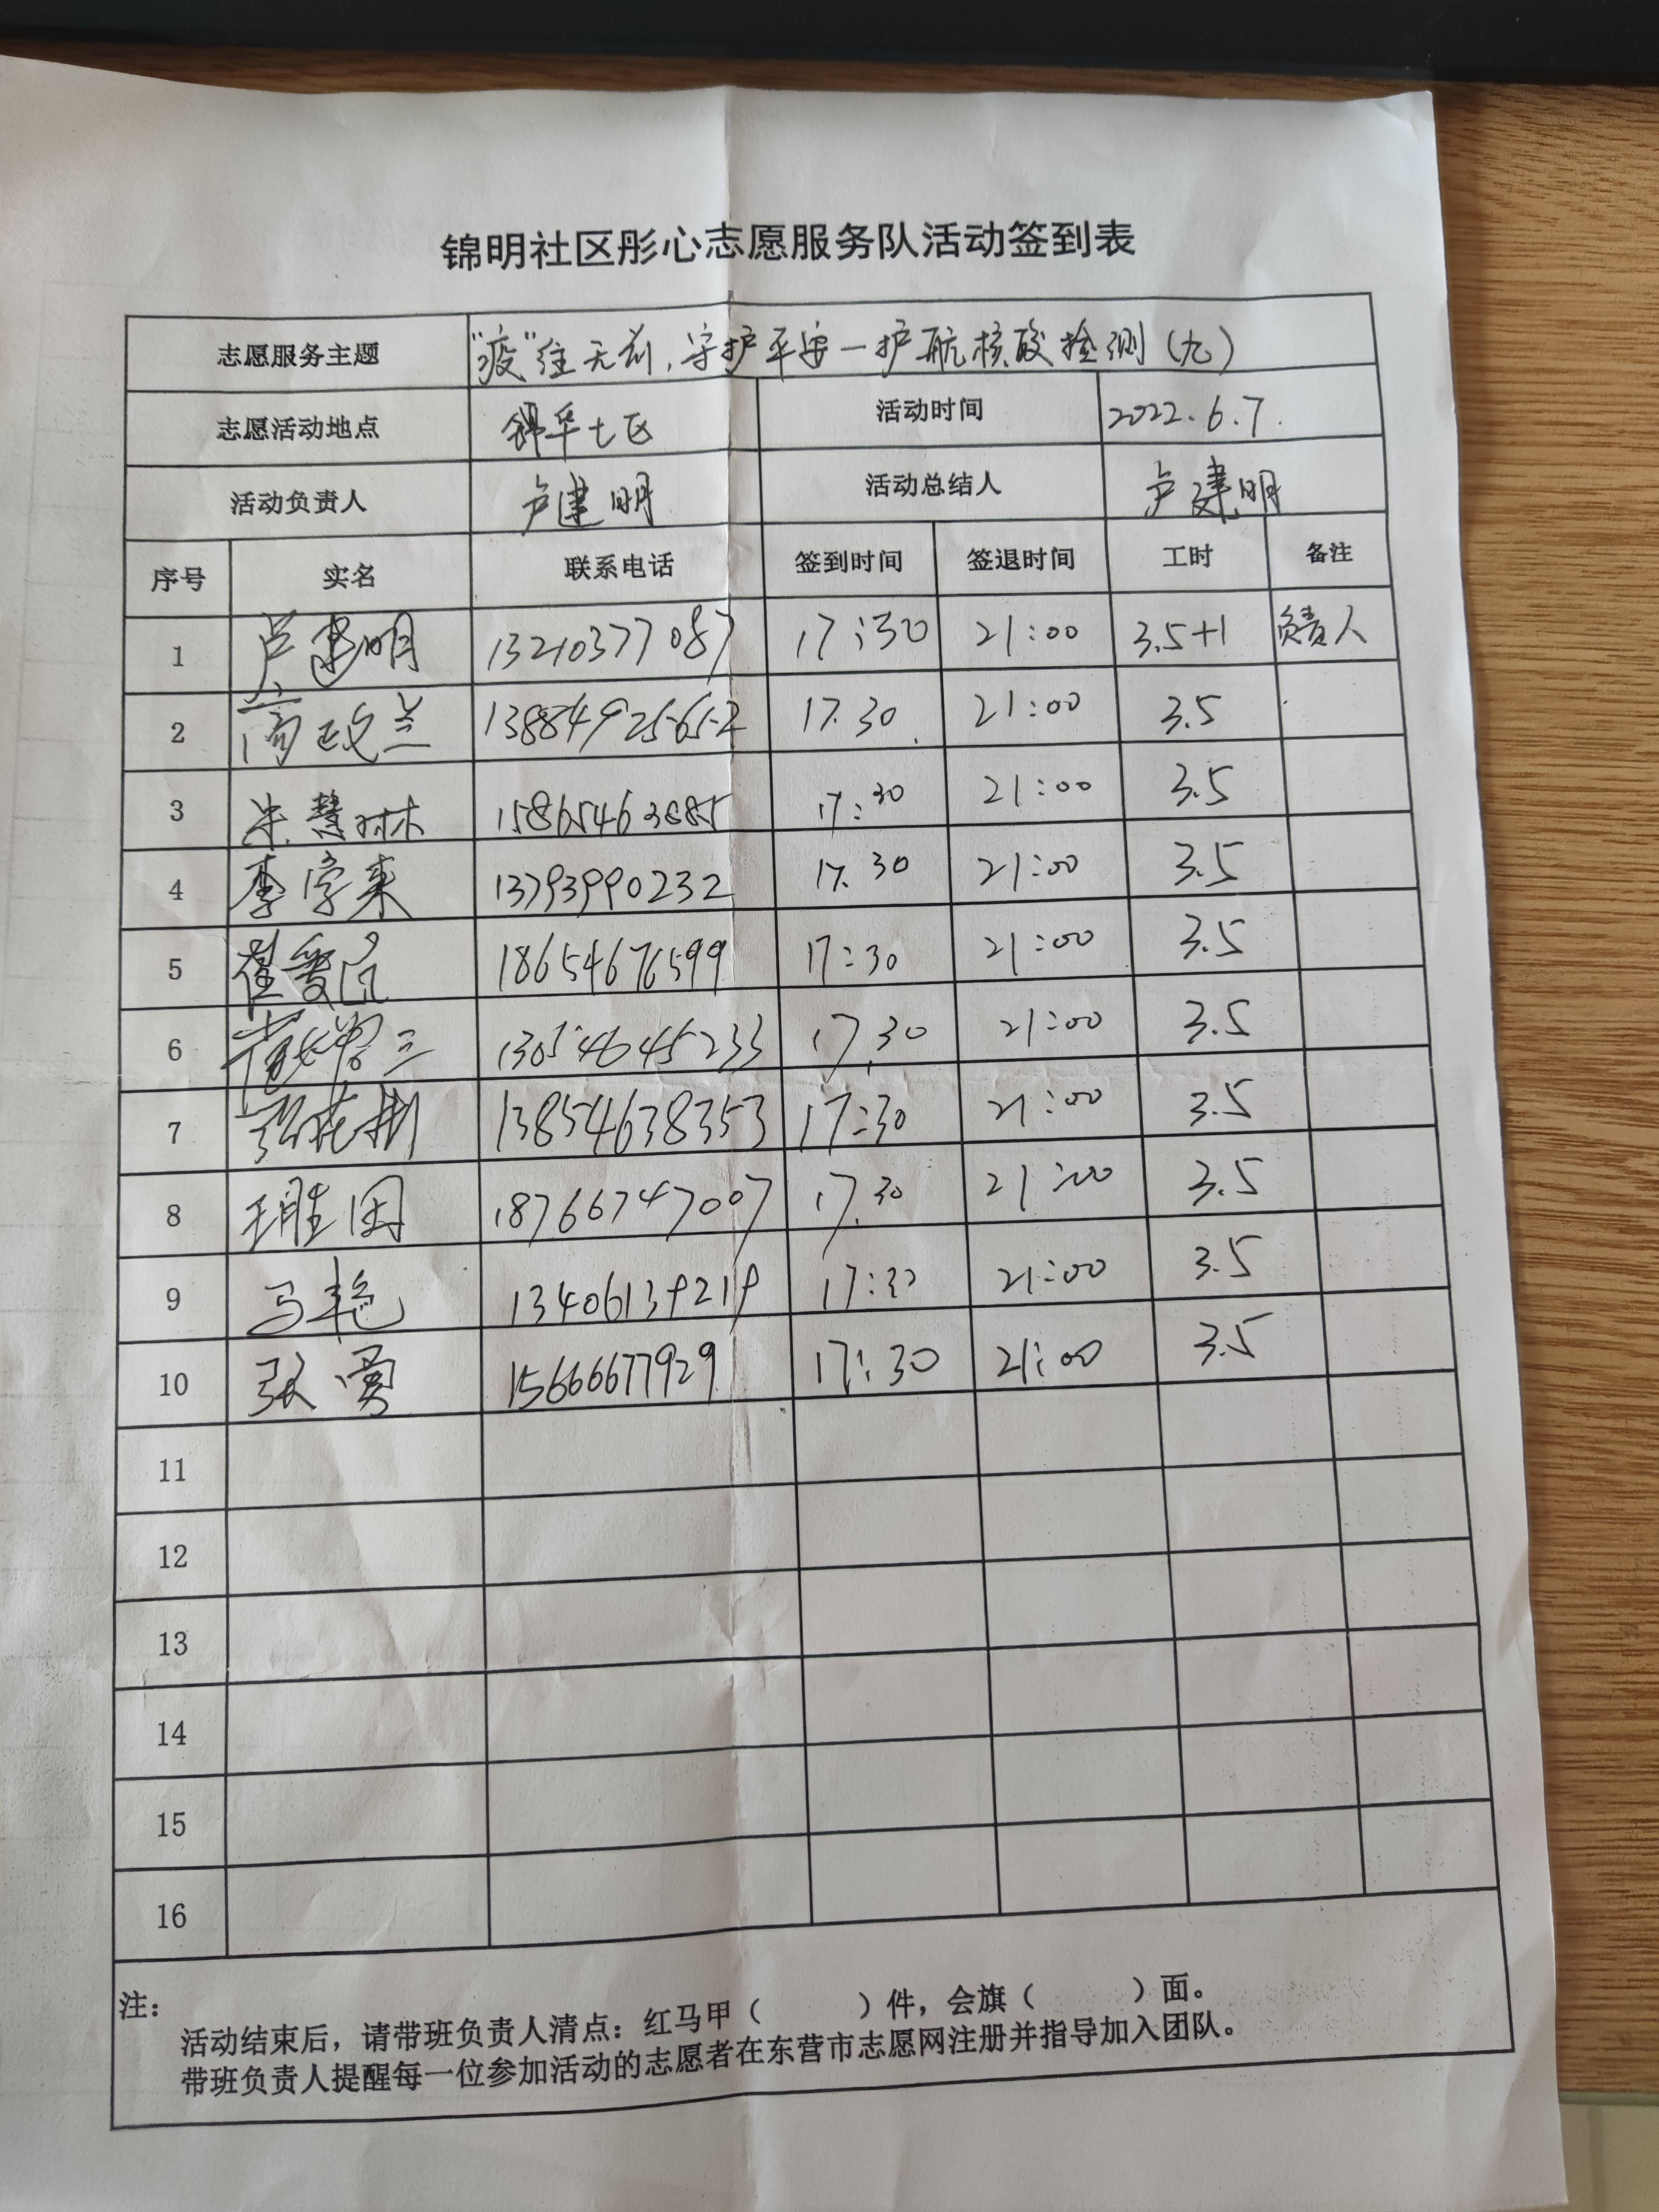 锦明社区彤心志愿服务队活动签到表
志愿服务主题 "疫"往无前,守护平安一护航核酸检测(九)
志愿活动地点 锦华七区 活动时间 2022.6.7.
活动负责人 卢建明 活动总结人 卢建明
序号 实名 联系电话 签到时间 签退时间 工时 备注
1 卢建明 13210377087 17:30 21:00 3.5+1 负责人
2 高政兰 13884925652 17.30 21:00 3.5
3 慧琳 15865463885 17:30 21:00 3.5
4 李学来 13793990232 17.30 21:00 3.5
5 崔爱 18654676599 17:30 21:00 3.5
6 13054645233 17.30 21:00 3.5
7 13854638353 17:30 21:00 3.5
8 王胜国 18766747007 17.30 21:00 3.5
9 马艳 13406139219 17:30 21:00 3.5
10 张勇 15666677929 17:30 21:00 3.5
11
12
13
14
15
16
注:
活动结束后,请带班负责人清点:红马甲( )件,会旗( )面。
带班负责人提醒每一位参加活动的志愿者在东营市志愿网注册并指导加入团队。